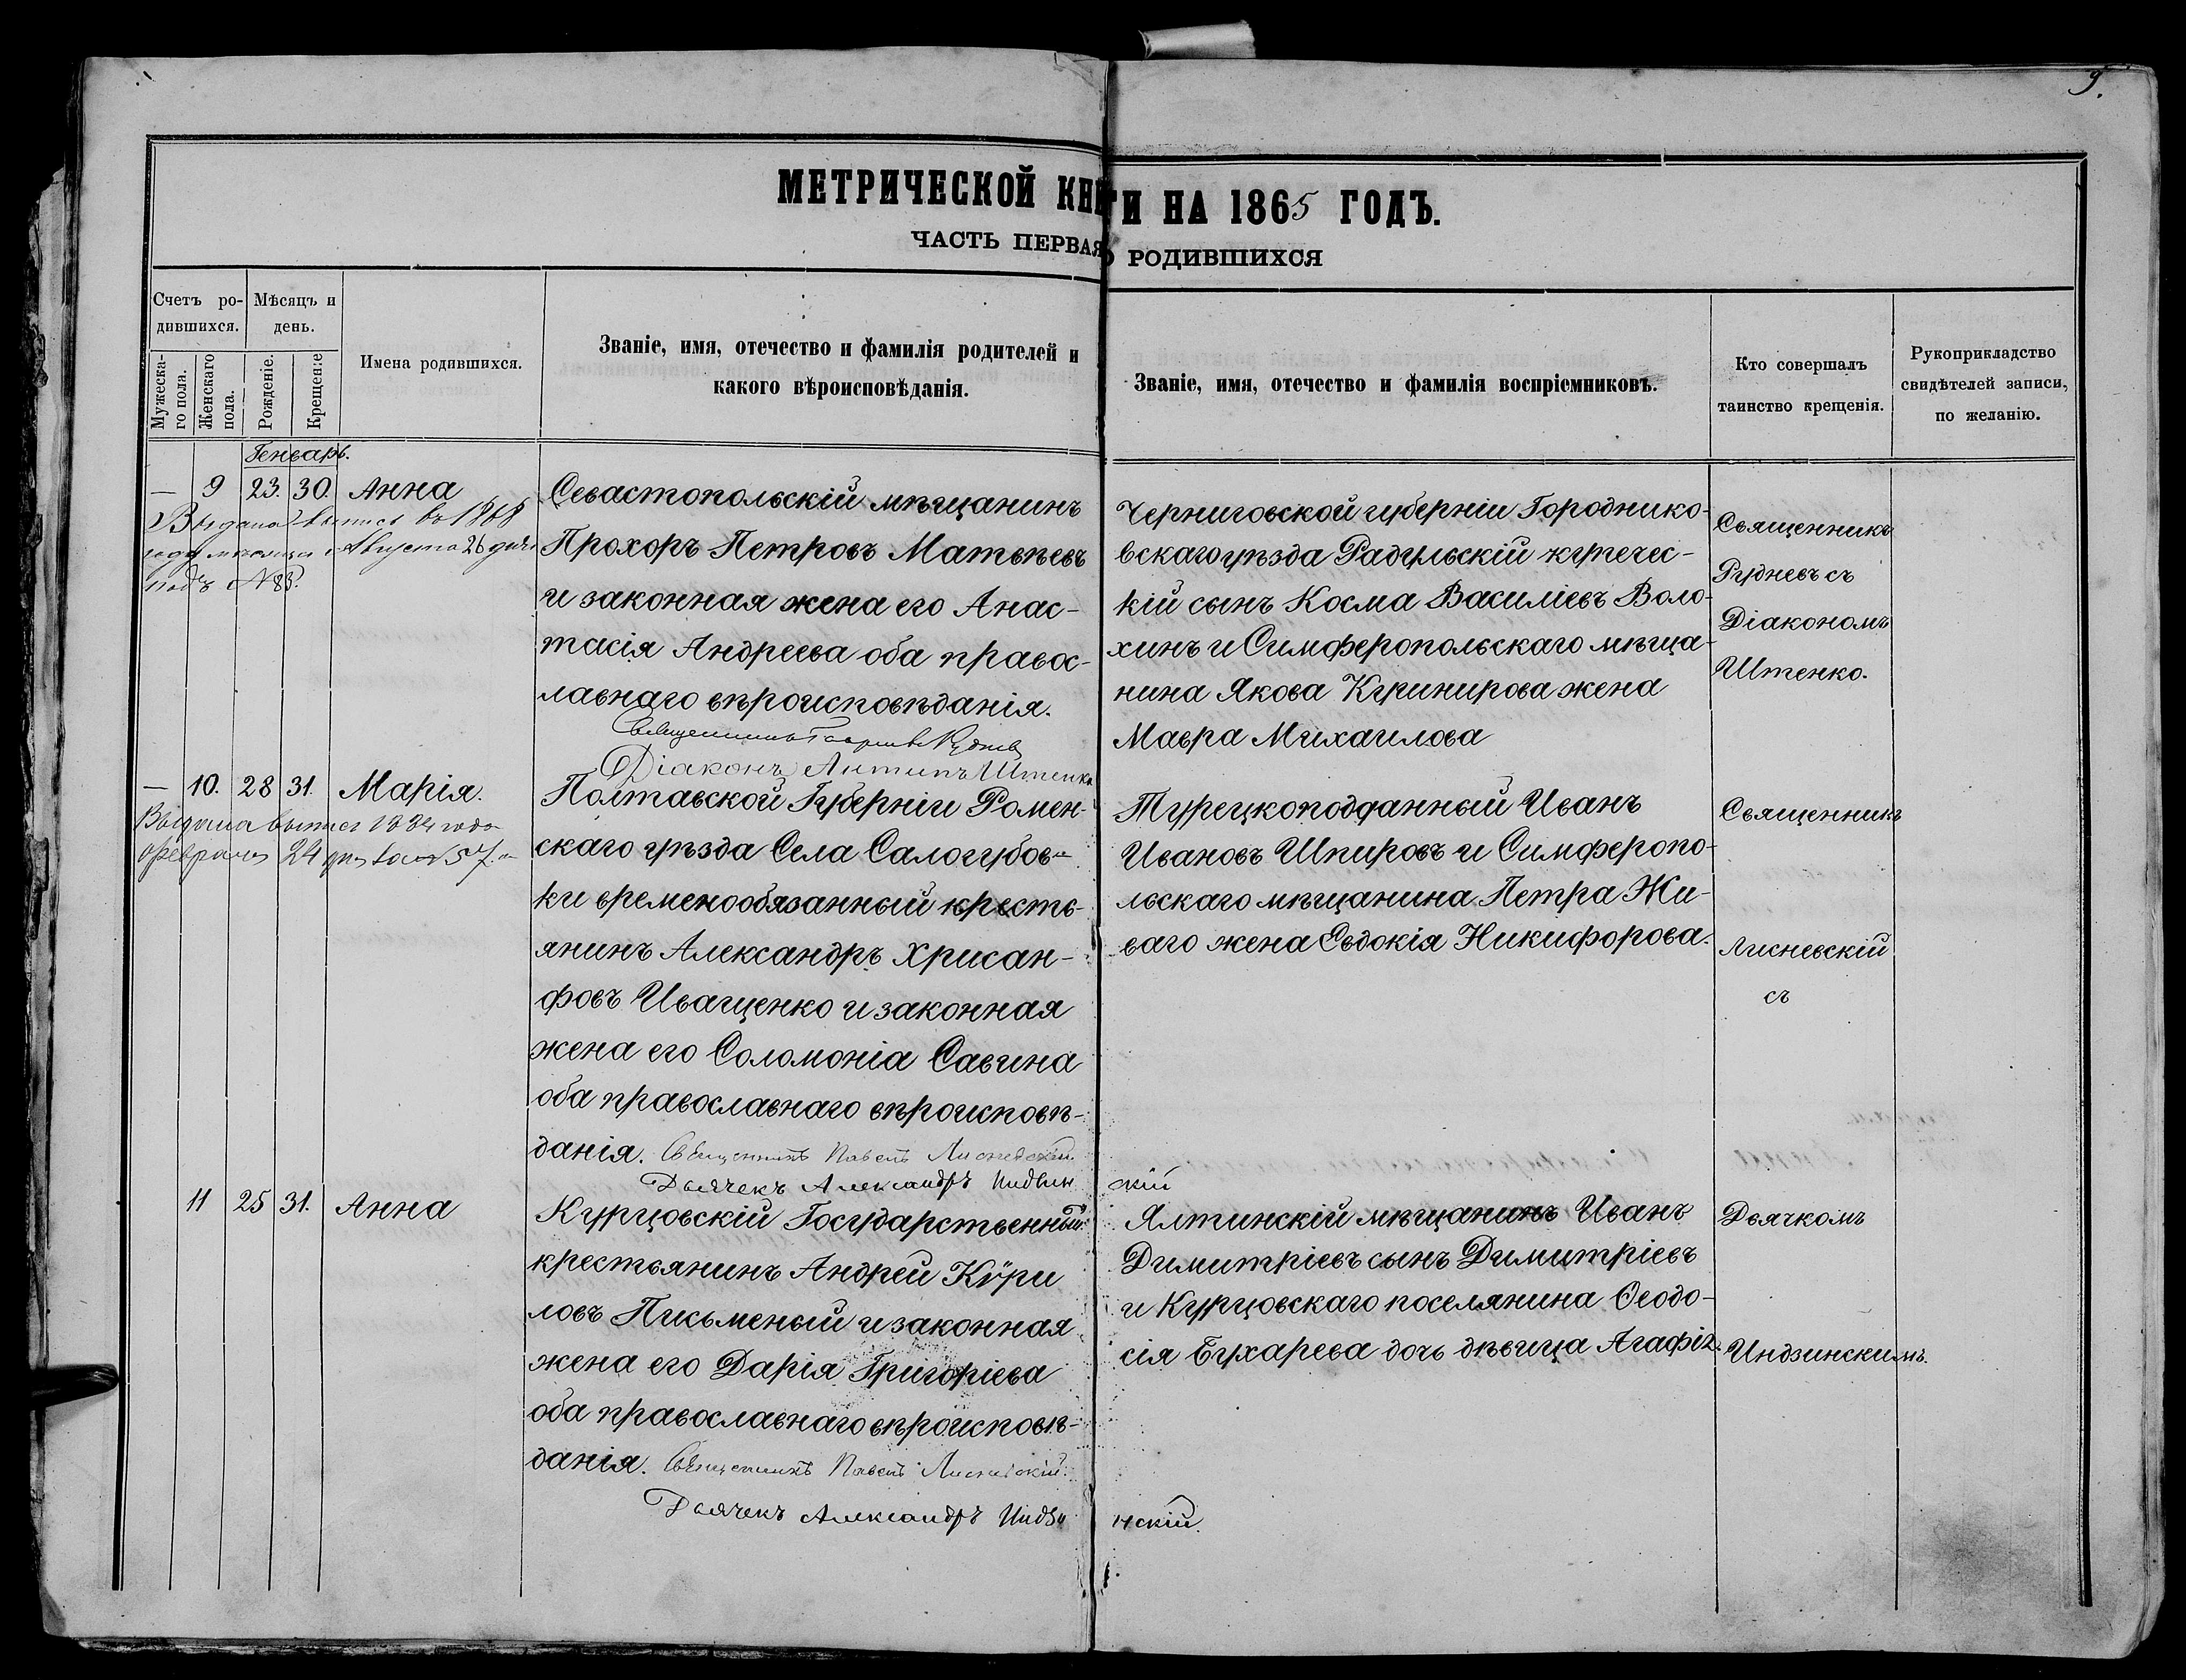 9.
МЕТРИЧЕСКОЙ КНИГИ НА 1865 ГОДЪ.
ЧАСТЬ ПЕРВАЯ О РОДИВШИХСЯ
Счетъ ро-
дившихся.
Мужеска-
го пола.
Женскаго
пола.
Мѣсяцъ и
день.
Рожденіе.
Крещеніе
Имена родившихся.
Званіе, имя, отечество и фамилія родителей и
какого вѣроисповѣданія.
Званіе, имя, отечество и фамилія воспріемниковъ.
Кто совершалъ
таинство крещенія.
Рукоприкладство
свидѣтелей записи,
по желанію.
Генварь.
— 9 23. 30. Анна
Выдана выпись въ 1868
года мѣсяца Августа 26 дня
подъ №83.
Севастопольскій мѣщанинъ
Прохоръ Петровъ Матвѣевъ
и законная жена его Анас-
тасія Андреева оба правос-
лавнаго вѣроисповѣданія.
Священникъ Руднев
Діаконъ Антипъ Штенко
Черниговской губерніи Городнико-
вскаго уѣзда Радульскій купечес-
кій сынъ Косма Василіевъ Воло-
хинъ и Симферопольскаго мѣща-
нина Якова Кушнирова жена
Мавра Михаилова
Священникъ
Рудневъ съ
Діакономъ
Штенко.
— 10. 28 31. Марія.
Выдана выпись 1884 года
Февраля 24 дня за № 57.
Полтавской Губерніи Ромен-
скаго уѣзда Села Салогубов-
ки временообязанный кресть-
янинъ Александръ Хрисан-
фовъ Иващенко и законная
жена его Соломонія Савина
оба православнаго вѣроисповѣ-
данія. Священникъ Павелъ Лисневскій
Дьячекъ Александръ Индзинскій
Турецкоподданный Иванъ
Ивановъ Шпировъ и Симферопо-
льскаго мѣщанина Петра Жи-
ваго жена Евдокія Никифорова.
Священникъ
Лисневскій
съ
11 25 31. Анна
Курцовскій Государственный
крестьянинъ Андрей Кѵри
ловъ Письменый и законная
жена его Дарія Григоріева
оба православнаго вѣроисповѣ-
данія. Священникъ Павелъ Лисневскій.
Дьячекъ Александръ Индзинскій.
Ялтинскій мѣщанинъ Иванъ
Димитріевъ сынъ Димитріевъ
и Курцовскаго поселянина Ѳеодо-
сія Бухарева дочь дѣвица Агафія.
Дьячкомъ
Индзинскимъ.